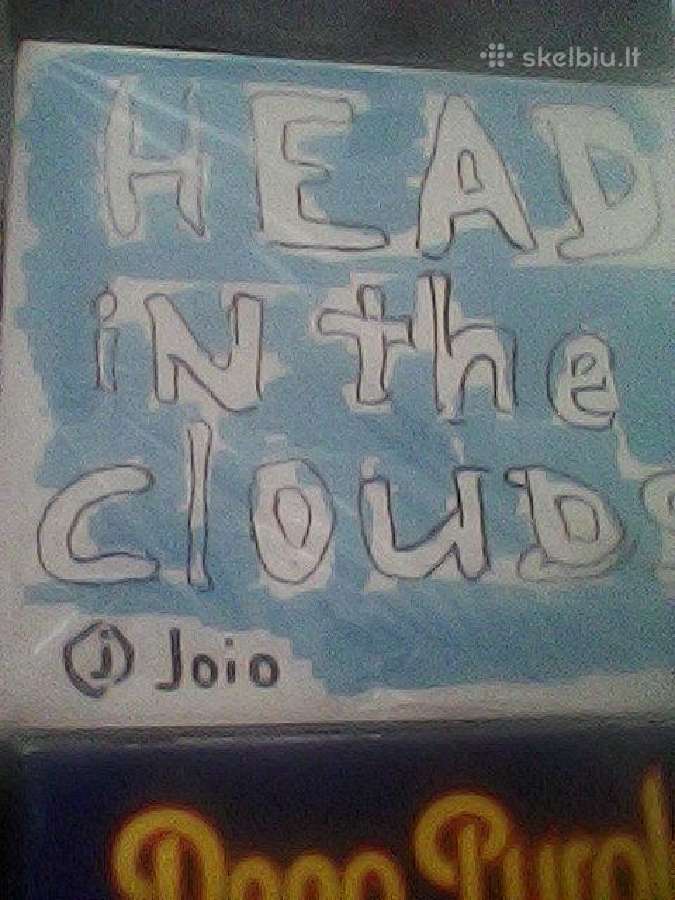 skelbiu.lt
HEAD
iN the
cloUDs
(j) Joio
Deep Purpl